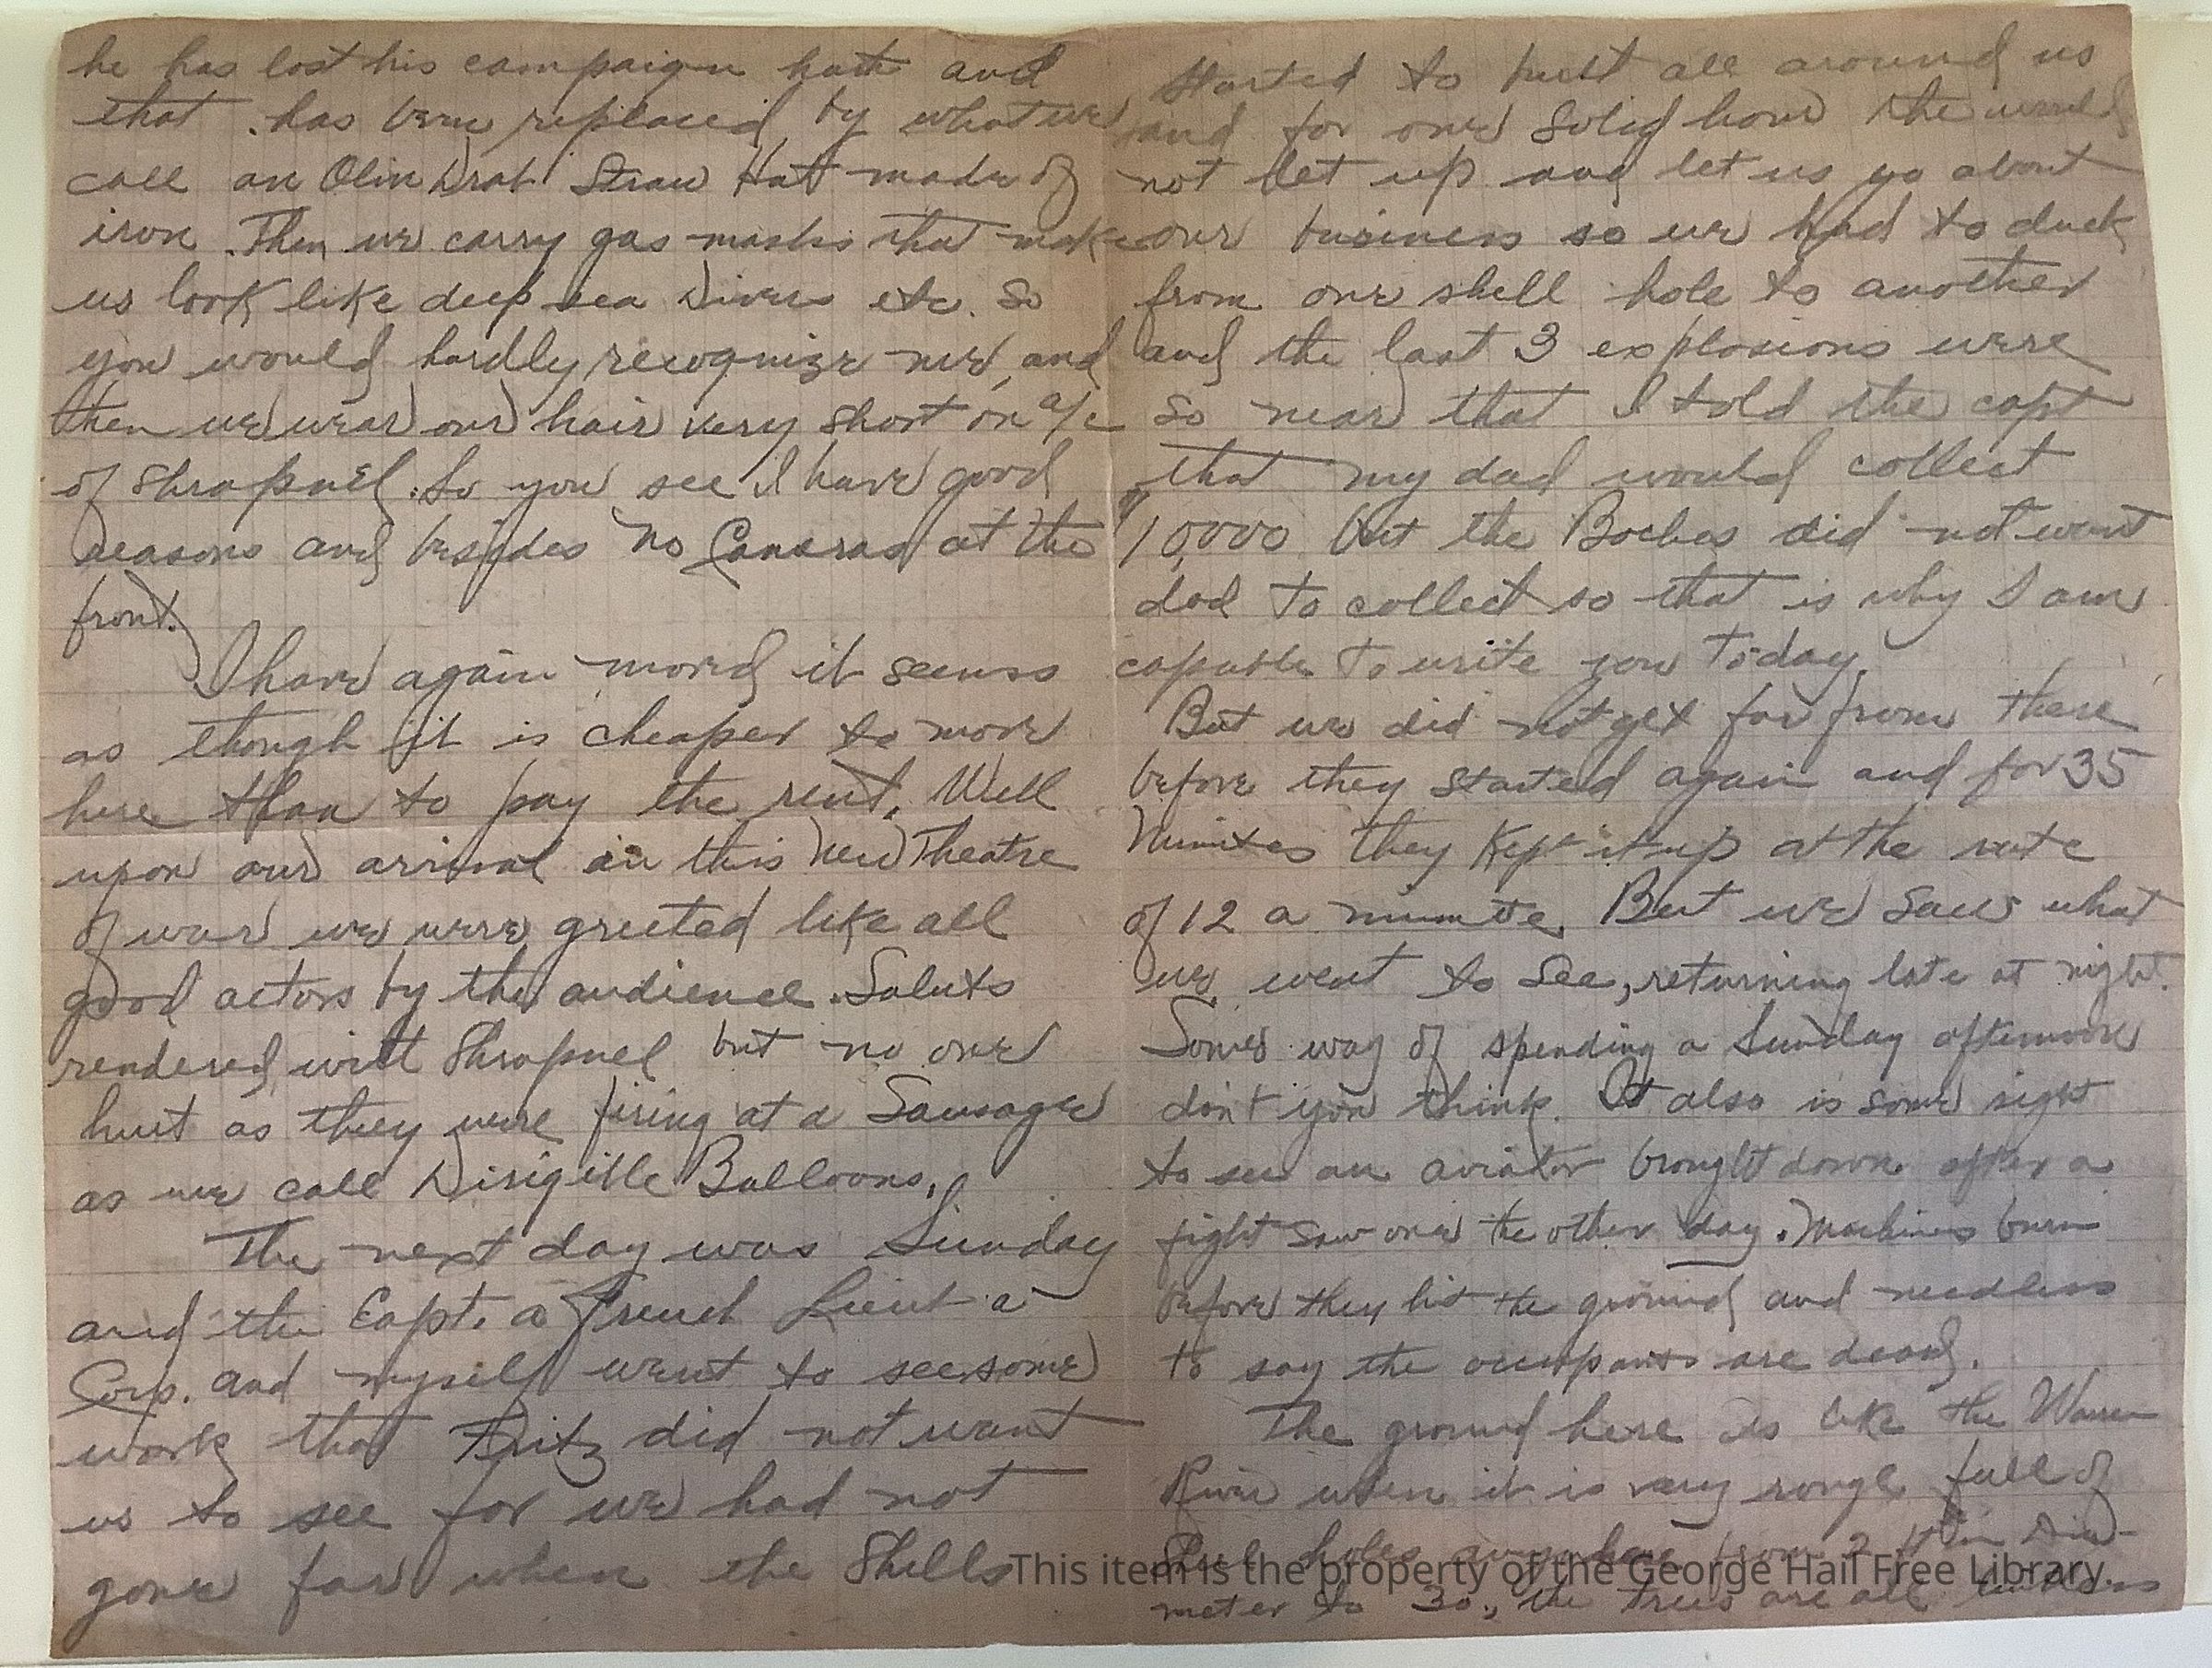 he has lost his campaign hat and
that has been replaced by what we
call an Olive Drab Straw Hat made of
iron. Then we carry gas masks that make
us look like deep sea Divers etc. So
you would hardly recognize me, and
then we wear our hair very short on a/c
of Shrapnel. So you see I have good
reasons and besides no Cameras at the
front.
I have again moved it seems
as though it is cheaper to move
here than to pay the rent. Well
upon our arrival in this New Theatre
of war we were greeted like all
good actors by the audience. Saluts
rendered with Shrapnel but no one
hurt as they were firing at a Sausage
as we call Dirigible Balloons.
The next day was Sunday
and the Capt. a French Lieut a
Corp. and myself went to see some
work that Fritz did not want
us to see for we had not
gone far when the Shells
started to bust all around us
and for one solid hour the would
not let up and let us go about
our business so we had to duck
from one shell hole to another
and the last 3 explosions were
so near that I told the capt
that my dad would collect
"10,000 but the Boches did not want
dad to collect so that is why I am
capable to write you today.
But we did not get far from there
before they started again and for 35
Minutes they kept it up at the rate
of 12 a minute. But we saw what
we went to see, returning late at night.
Some way of spending a Sunday afternoon
don't you think. It also is some sight
to see an aviator brought down after a
fight saw one the other day. Machines burn
before they hit the ground and needless
to say the occupants are dead.
The ground here is like the Warren
River when it is very rough full of
Shell holes anywhere from 2 ft in Dia-
meter to 30, the trees are all
This item is the property of the George Hail Free Library.